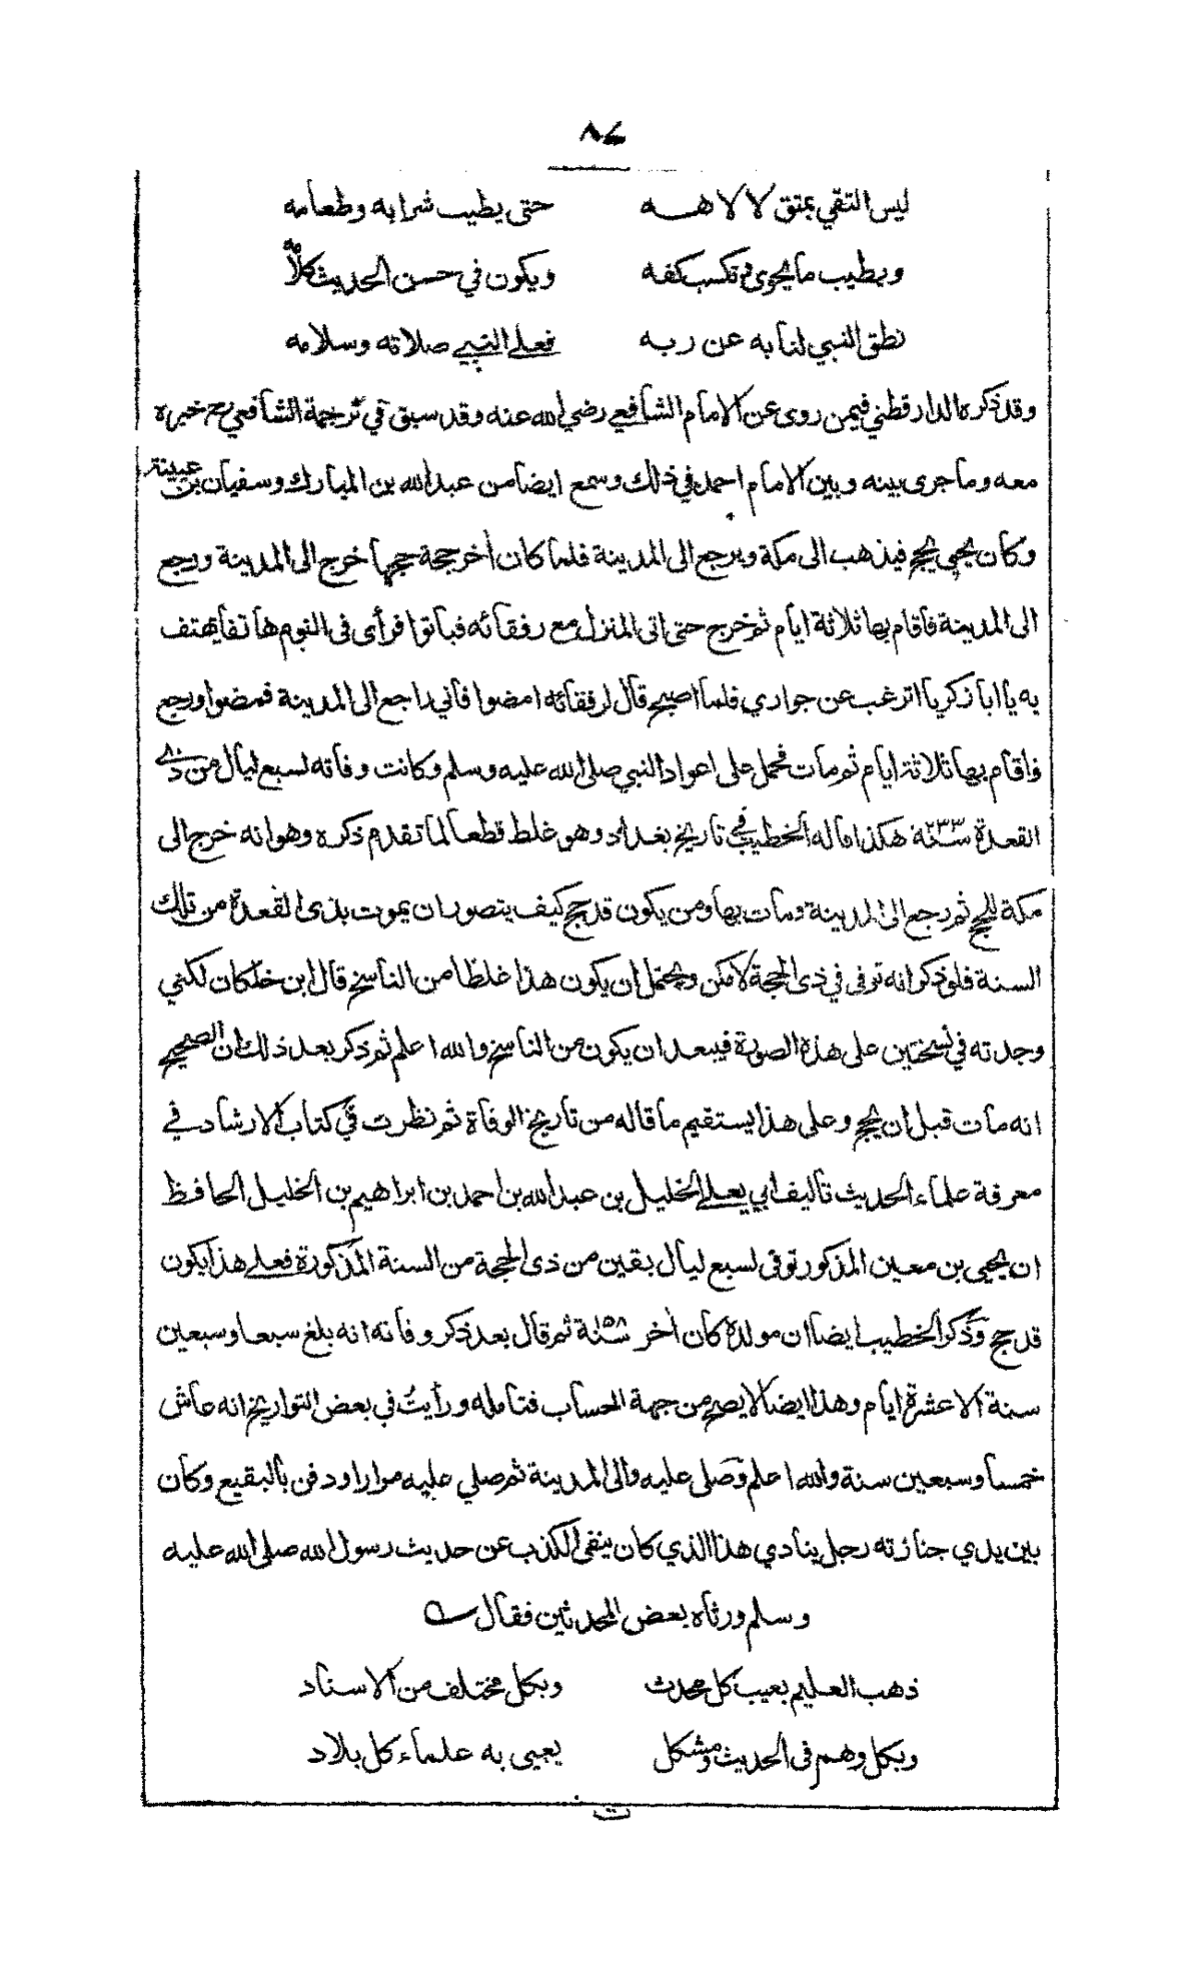 ٨٤
ليس التقي بمتق لالاهه حتى يطيب شرابه وطعامه
ويطيب ما يحوى وتكسب كفه ويكون في حسن الحديث كلامه
نطق النبي لنا به عن ربه فعلى النبي صلاته وسلامه
وقد ذكره الدارقطني فيمن روى عن الامام الشافعي رضي الله عنه وقد سبق في ترجمة الشافعي رح خبره
معه وما جرى بينه وبين الامام احمد في ذلك وسمع ايضا من عبد الله بن المبارك وسفيان بن عيينة
وكان يحيى يحج فيذهب الى مكة ويرجع الى المدينة فلما كان اخر حجة حجها خرج الى المدينة ورجع
الى المدينة فاقام بها ثلاثة ايام ثم خرج حتى اتى المنزل مع رفقائه فباتوا فرأى في النوم هاتفا يهتف
به يا ابا زكريا اترغب عن جواري فلما اصبح قال لرفقائه امضوا فاني راجع الى المدينة فمضوا ورجع
فاقام بها ثلاثة ايام ثم مات فحمل على اعواد النبي صلى الله عليه وسلم وكانت وفاته لسبع ليال من ذي
القعدة سنة ٢٣٣ هكذا قاله الخطيب في تاريخ بغداد وهو غلط قطعا لما تقدم ذكره وهو انه خرج الى
مكة للحج ثم رجع الى المدينة ومات بها ومن يكون قد حج كيف يتصور ان يموت بذى القعدة من تلك
السنة فلو ذكر انه توفى في ذى الحجة لامكن ويحتمل ان يكون هذا غلطا من الناسخ قال ابن خلكان لكنني
وجدته في نسختين على هذه الصورة فيبعد ان يكون من الناسخ والله اعلم ثم ذكر بعد ذلك ان الصحيح
انه مات قبل ان يحج وعلى هذا يستقيم ما قاله من تاريخ الوفاة ثم نظرت في كتاب الارشاد في
معرفة علماء الحديث تاليف ابي يعلى الخليل بن عبد الله بن احمد بن ابراهيم بن الخليل الحافظ
ان يحيى بن معين المذكور توفى لسبع ليال بقين من ذى الحجة من السنة المذكورة فعلى هذا يكون
قد حج وذكر الخطيب ايضا ان مولده كان اخر سنة ١٥٨ ثم قال بعد ذكر وفاته انه بلغ سبعا وسبعين
سنة الا عشرة ايام وهذا ايضا لا يصح من جهة الحساب فتامله ورأيت في بعض التواريخ انه عاش
خمسا وسبعين سنة والله اعلم وصلى عليه والى المدينة ثم صلي عليه مرارا ودفن بالبقيع وكان
بين يدي جنازته رجل ينادي هذا الذي كان ينفي الكذب عن حديث رسول الله صلى الله عليه
وسلم ورثاه بعض المحدثين فقال
ذهب العليم بعيب كل محدث وبكل مختلف من الاسناد
وبكل وهم في الحديث ومشكل يعيى به علماء كل بلاد
ت